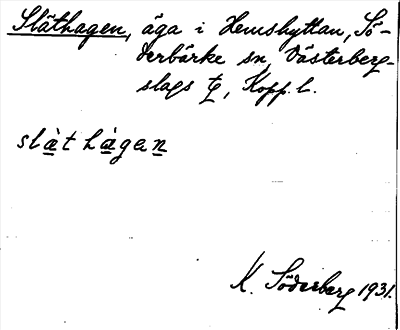 Släthagen, äga i Hemshyttan, Sö-
derbärke sn, Västerberg-
slags tg, Kopp. l.
slàt hàgen
K. Söderberg 1931.